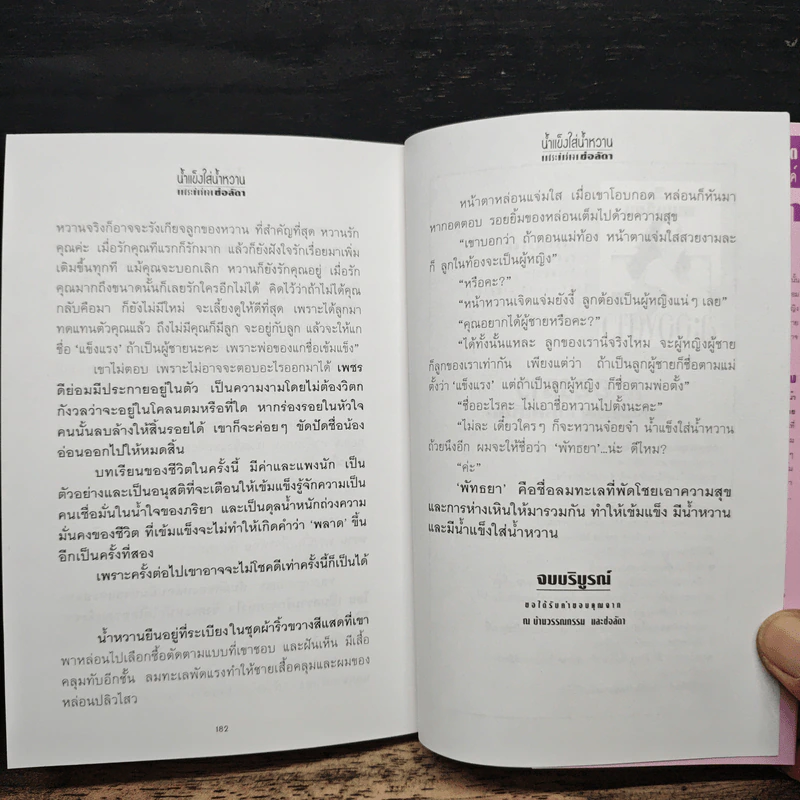 น้ำแข็งใส่น้ำหวาน
ช่อลัดา
หวานจริงก็อาจจะรังเกียจลูกของหวาน ที่สำคัญที่สุด หวานรัก
คุณค่ะ เมื่อรักคุณทีแรกก็รักมาก แล้วก็ยังฝังใจรักเรื่อยมาเพิ่ม
เติมขึ้นทุกที แม้คุณจะบอกเลิก หวานก็ยังรักคุณอยู่ เมื่อรัก
คุณมากถึงขนาดนั้นก็เลยรักใครอีกไม่ได้ คิดไว้ว่าถ้าไม่ได้คุณ
กลับคืนมา ก็ยังไม่มีใหม่ จะเลี้ยงดูให้ดีที่สุด เพราะได้ลูกมา
ทดแทนตัวคุณแล้ว ถึงไม่มีคุณก็มีลูก จะอยู่กับลูก แล้วจะให้แก
ชื่อ ‘แข็งแรง’ ถ้าเป็นผู้ชายนะคะ เพราะพ่อของแกชื่อเข้มแข็ง”
เขาไม่ตอบ เพราะไม่อาจจะตอบอะไรออกมาได้ เพชร
ดีย่อมมีประกายอยู่ในตัว เป็นความงามโดยไม่ต้องวิตก
กังวลว่าจะอยู่ในโคลนตมหรือที่ใด หากร่องรอยในหัวใจ
คนนั้นลบล้างให้สิ้นรอยได้ เขาก็จะค่อยๆ ขัดปัดชื่อน้อง
อ่อนออกไปให้หมดสิ้น
บทเรียนของชีวิตในครั้งนี้ มีค่าและแพงนัก เป็น
ตัวอย่างและเป็นอนุสติที่จะเตือนให้เข้มแข็งรู้จักความเป็น
คนเชื่อมั่นในน้ำใจของภริยา และเป็นดุลน้ำหนักถ่วงความ
มั่นคงของชีวิต ที่เข้มแข็งจะไม่ทำให้เกิดคำว่า ‘พลาด’ ขึ้น
อีกเป็นครั้งที่สอง
เพราะครั้งต่อไปเขาอาจจะไม่โชคดีเท่าครั้งนี้ก็เป็นได้
น้ำหวานยืนอยู่ที่ระเบียงในชุดผ้าริ้วขวางสีแสดที่เขา
พาหล่อนไปเลือกซื้อตัดตามแบบที่เขาชอบ และฝันเห็น มีเสื้อ
คลุมทับอีกชั้น ลมทะเลพัดแรงทำให้ชายเสื้อคลุมและผมของ
หล่อนปลิวไสว
182
น้ำแข็งใส่น้ำหวาน
ช่อลัดา
หน้าตาหล่อนแจ่มใส เมื่อเขาโอบกอด หล่อนก็หันมา
หากอดตอบ รอยยิ้มของหล่อนเต็มไปด้วยความสุข
“เขาบอกว่า ถ้าตอนแม่ท้อง หน้าตาแจ่มใสสวยงามละ
ก็ ลูกในท้องจะเป็นผู้หญิง”
“หรือคะ?”
“หน้าหวานเจิดแจ่มยังงี้ ลูกต้องเป็นผู้หญิงแน่ๆ เลย”
“คุณอยากได้ผู้ชายหรือคะ?”
“ได้ทั้งนั้นแหละ ลูกของเรานี่จริงไหม จะผู้หญิงผู้ชาย
ก็ลูกของเราเท่ากัน เพียงแต่ว่า ถ้าเป็นลูกผู้ชายก็ชื่อตามแม่
ตั้งว่า ‘แข็งแรง’ แต่ถ้าเป็นลูกผู้หญิง ก็ชื่อตามพ่อตั้ง”
“ชื่ออะไรคะ ไม่เอาชื่อหวานไปตั้งนะคะ”
“ไม่ละ เดี๋ยวใครๆ ก็จะหวานจ๋อยจ๋า น้ำแข็งใส่น้ำหวาน
ถ้วยนึงอีก ผมจะให้ชื่อว่า ‘พัทธยา’...น่ะ ดีไหม?
“ค่ะ”
‘พัทธยา’ คือชื่อลมทะเลที่พัดโชยเอาความสุข
และการห่างเหินให้มารวมกัน ทำให้เข้มแข็ง มีน้ำหวาน
และมีน้ำแข็งใส่น้ำหวาน
จบบริบูรณ์
ขอได้รับคำขอบคุณจาก
ณ บ้านวรรณกรรม และช่อลัดา